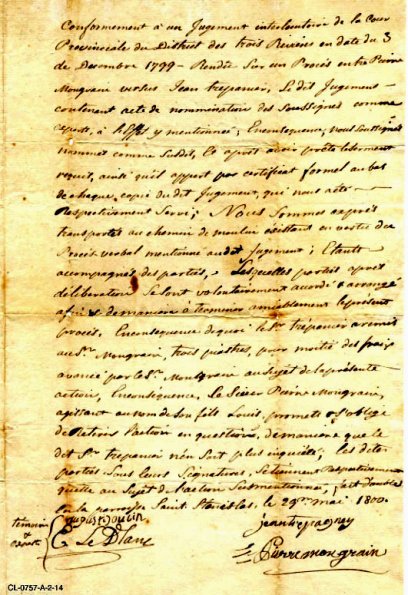 Conformement a un Jugement interlocutoire de la Cour
Provinciale du District des trois Rivieres en date du 3
de Decembre 1799 - Rendue Sur un Procès entre Pierre
Mongrain versus Jean trepanier, Le dit Jugement
contenant acte de nommination des Soussignés comme
experts, a l'effet y mentionné; En consequence, nous soussignés
nommés comme Susdit, Et après avoir prealablement
requit, ainsi qu'il appert par certificat formel au bas
de chaque copie du dit Jugement, qui nous acté
Respectivement Servi; Nous Sommes exprès
transportés au chemin de moulin existant en vertu du
Procès verbal mentionné au dit Jugement; Etant
accompagnés des parties, Lesquelles parties après
déliberation Se sont volontairement accordé & arrangé
afin de terminer amiablement le present
procès, En consequence de quoi le Sr. trepanier a remit
au Sr. Mongrain, trois piastres, pour moitié des frais
avancé par le Sr. Montgrain au Sujet de la presente
action, En consequence, Le Sieur Pierre Mongrain,
agissant au nom de Son fils Louis, promet & S'oblige
de Retirer l'action en question, de maniere que le
dit Sr. trepanier n'en Soit plus inquiété; les dites
parties Sous leurs Signatures, Se tiennent Respectivement
quitte au Sujet de l'action Susmentionné, fait double
En la paroisse Saint Stanislas, le 29me mai 1800.
temoin
&
expert
Boutin
E Le Blanc
jean trepagney
Pierre mon grain
CL-0757-A-2-14